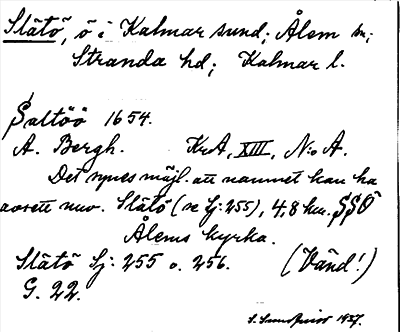 Slätö, ö i Kalmar sund; Ålem sn;
Stranda hd; Kalmar l.
Saltöö 1654.
A. Bergh. KrA, XIII, N:o A.
Det synes möjl. att namnet kan ha
avsett nuv. Slätö (se Sj: 255), 4,8 km. SSO
Ålems kyrka.
Slätö Sj: 255 o. 256. (Vänd!)
G. 22.
S. 1927.